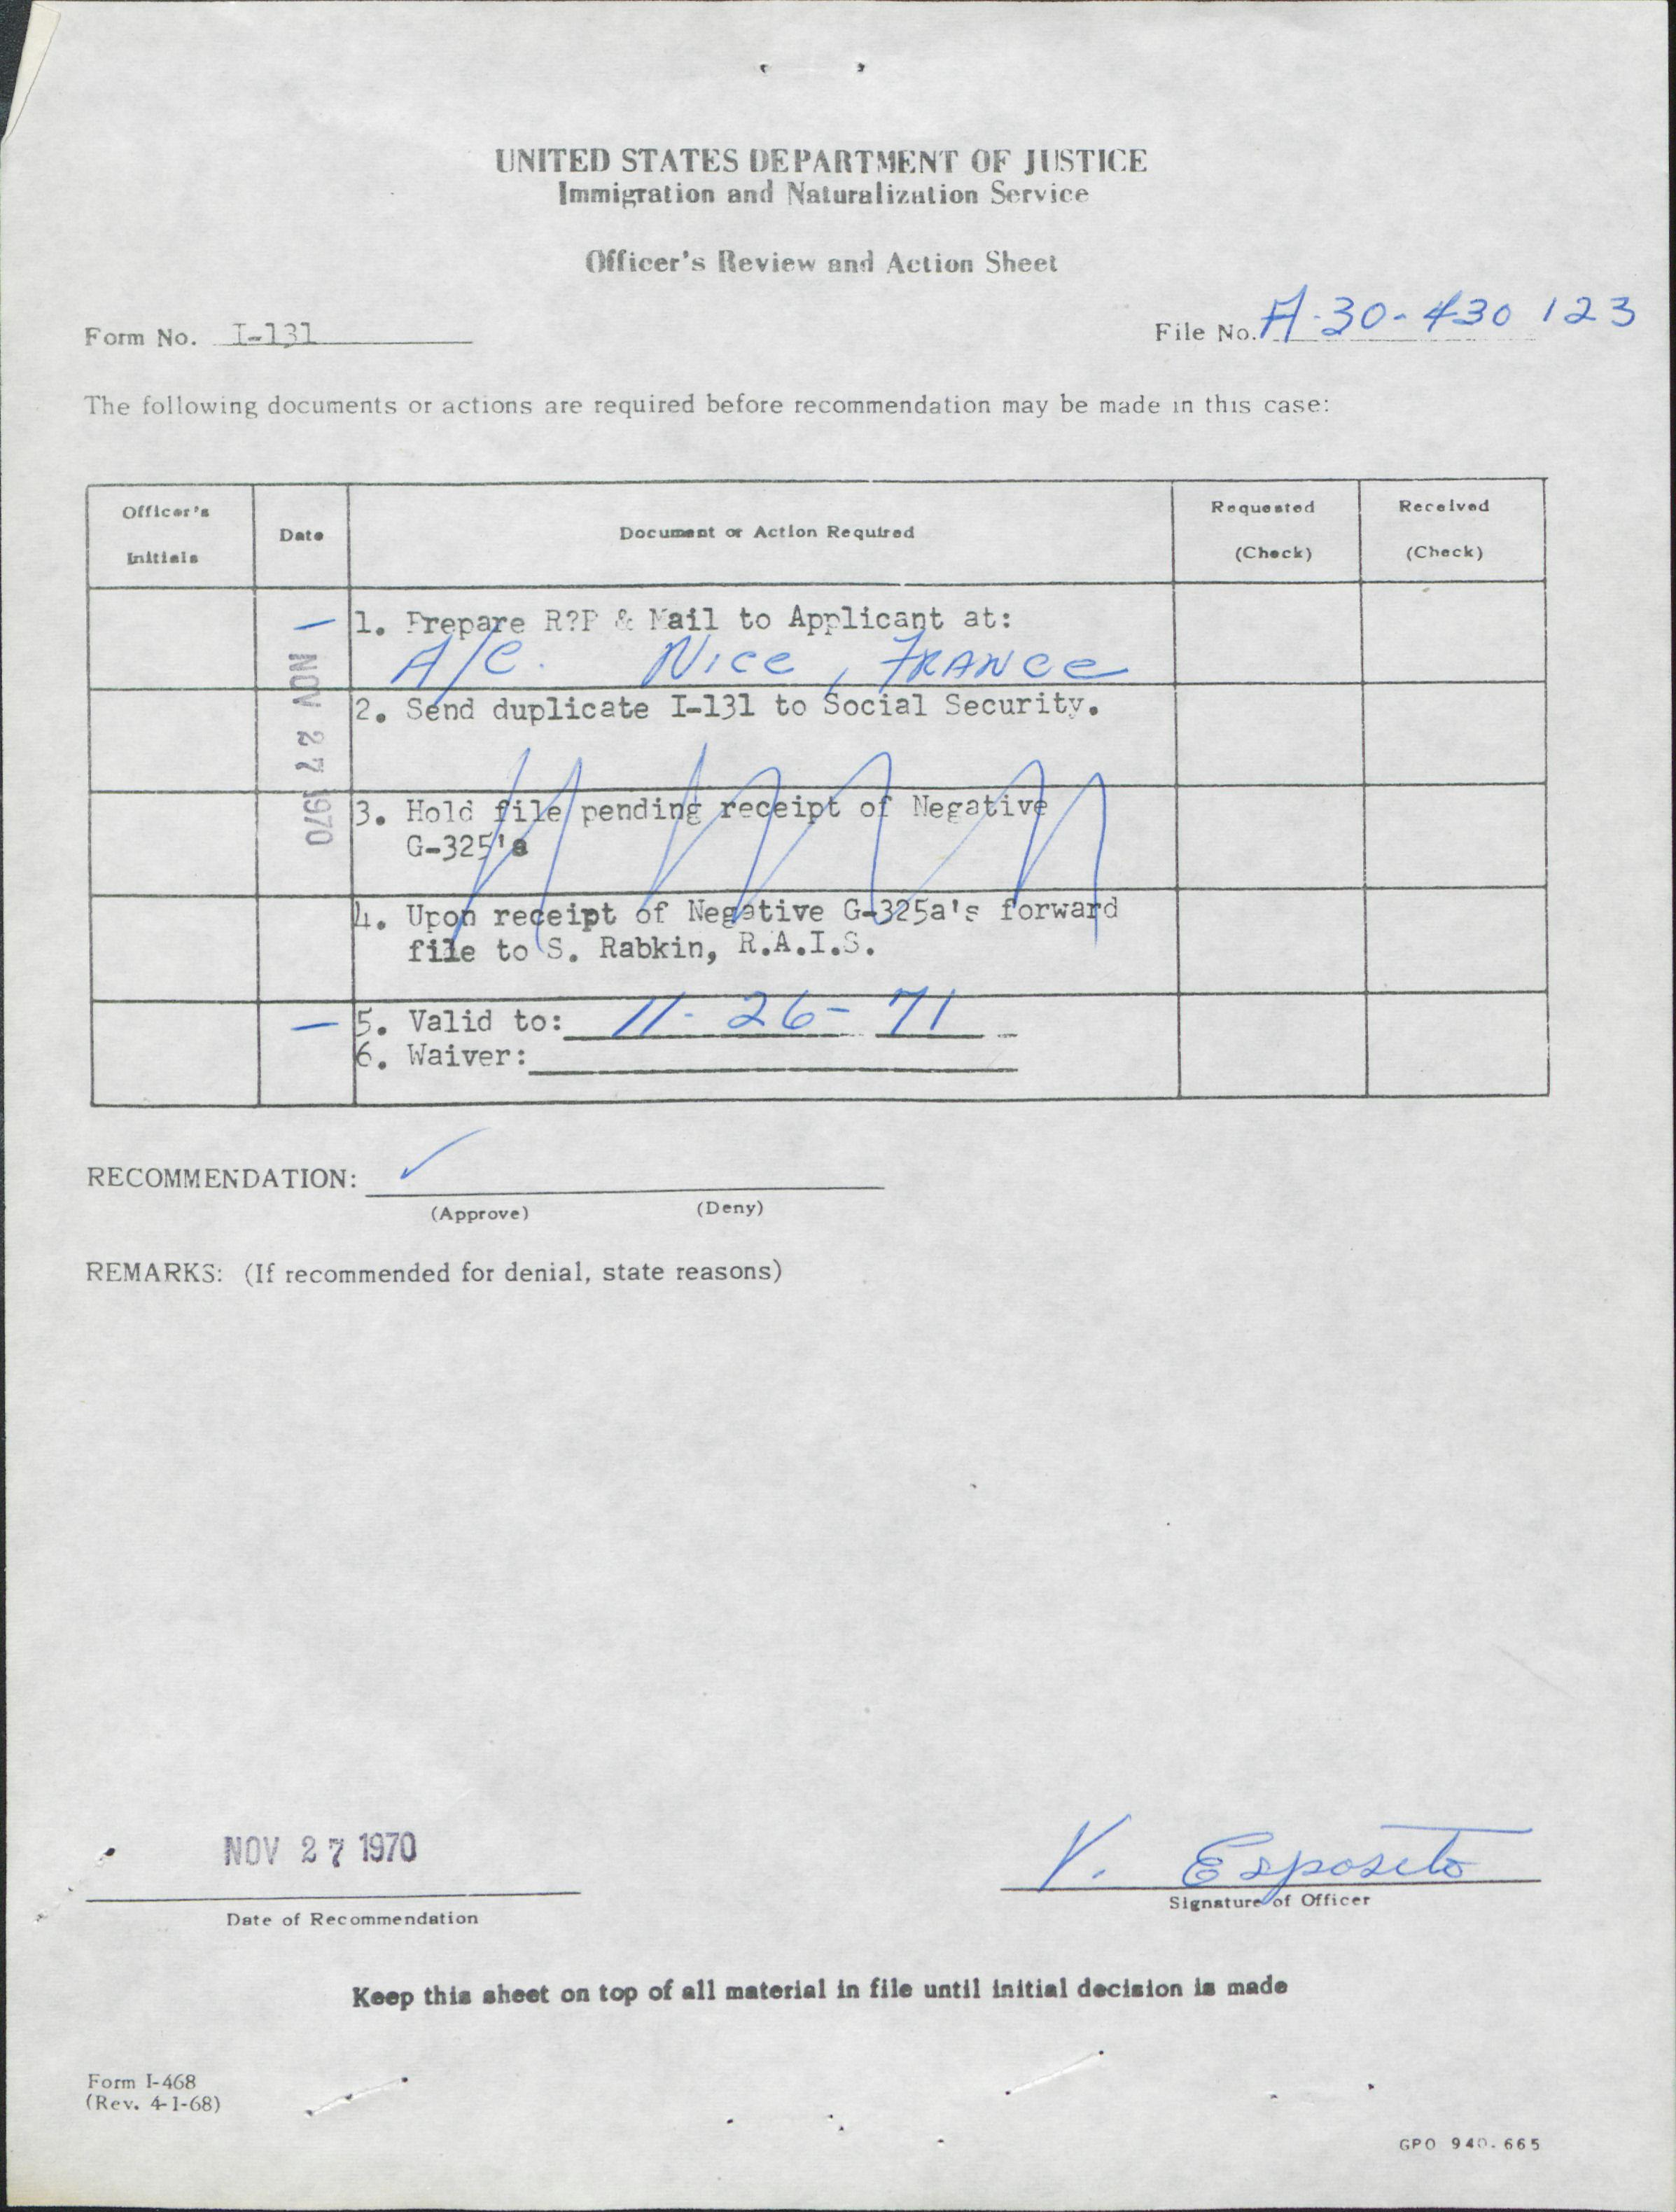 UNITED STATES DEPARTMENT OF JUSTICE
Immigration and Naturalization Service
Officer's Review and Action Sheet
Form No. I-131
File No. A-30-430 123
The following documents or actions are required before recommendation may be made in this case:
Officer's Initials
Date
Document or Action Required
Requested (Check)
Received (Check)
NOV 27 1970
1. Prepare R?P & Mail to Applicant at:
A/C. Nice, FRANce
2. Send duplicate I-131 to Social Security.
3. Hold file pending receipt of Negative
G-325's
4. Upon receipt of Negative G-325a's forward
file to S. Rabkin, R.A.I.S.
5. Valid to: 11-26-71
6. Waiver:
RECOMMENDATION:
(Approve) (Deny)
REMARKS: (If recommended for denial, state reasons)
NOV 27 1970
V. Esposito
Date of Recommendation
Signature of Officer
Keep this sheet on top of all material in file until initial decision is made
Form I-468
(Rev. 4-1-68)
GPO 940-665